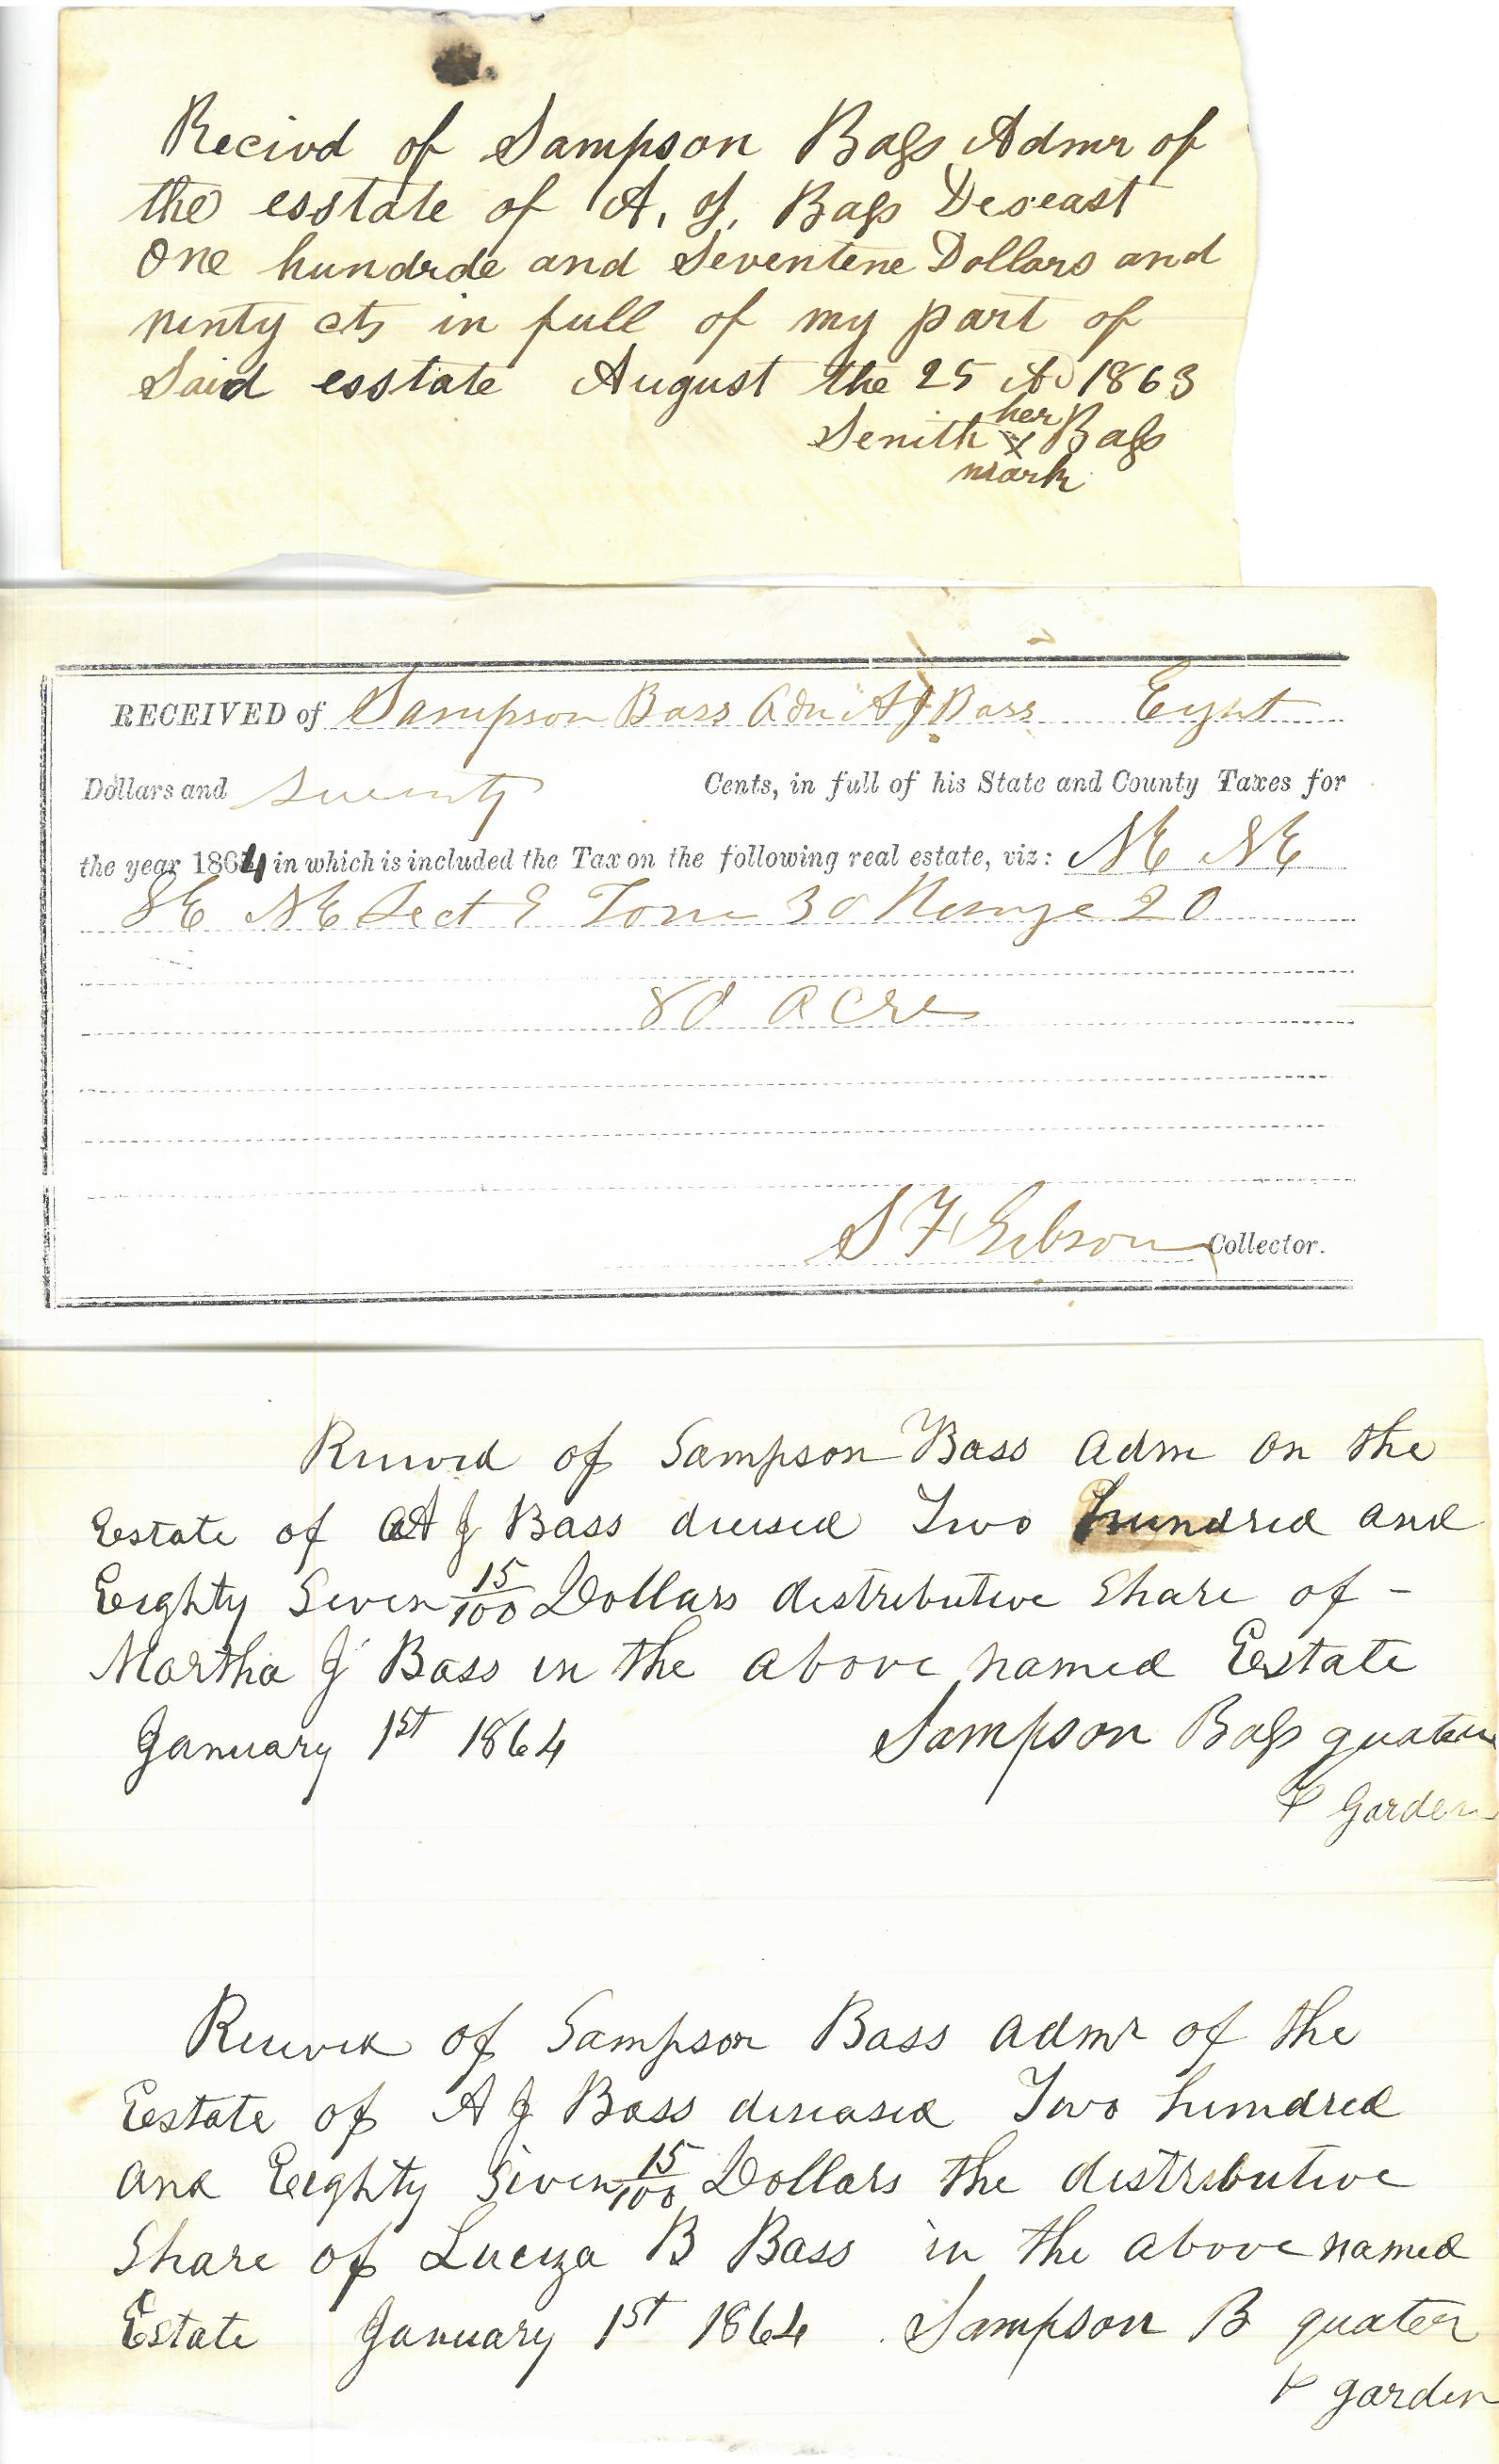 Recivd of Sampson Bass Admr of
the esstate of A. J. Bass Deseast
One hundrde and Seventene Dollars and
ninty cts in full of my part of
Said esstate August the 25 AD 1863
her
Senith x Bass
mark
RECEIVED of Sampson Bass Adm A J Bass Eight
Dollars and Cents, in full of his State and County Taxes for
the year 1864 in which is included the Tax on the following real estate, viz: NE NE
SE NE Sect 9 Town 30 Range 20
80 acre
S F Gibson Collector.
Recivd of Sampson Bass adm on the
Estate of A J Bass Two hundred and
Eighty Seven 15/100 Dollars distributive Share of -
Martha J Bass in the above named Estate
January 1st 1864 Sampson Bass
& Garden
of Sampson Bass admr of the
Estate of A J Bass deseased Two hundred
and Eighty Seven 15/100 Dollars the distributive
Share of Luciza B Bass in the above named
Estate January 1st 1864 Sampson B quater
& garden